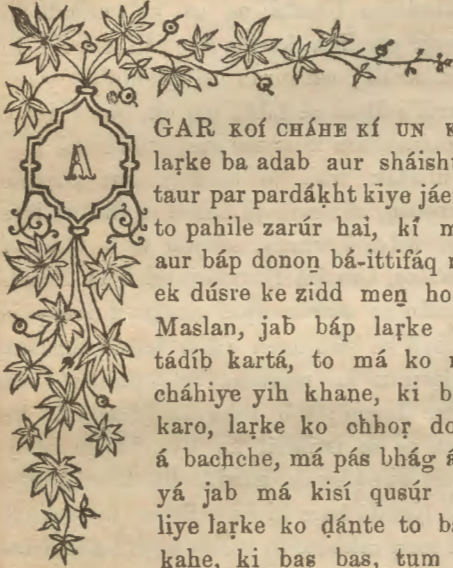 A
GAR KOÍ CHÁHE KÍ UN
laṛke ba adab aur
taur par pardáḳht kiye
to pahile zarúr hai, kí
aur báp donoṉ bá-ittifáq
ek dúsre ke zidd meṉ
Maslan, jab báp laṛke
tádíb kartá, to má ko
cháhiye yih khane, ki
karo, laṛke ko chhoṛ
á bachche, má pás bhág
yá jab má kisí qusúr
liye laṛke ko ḍánte to
kahe, ki bas bas, tum